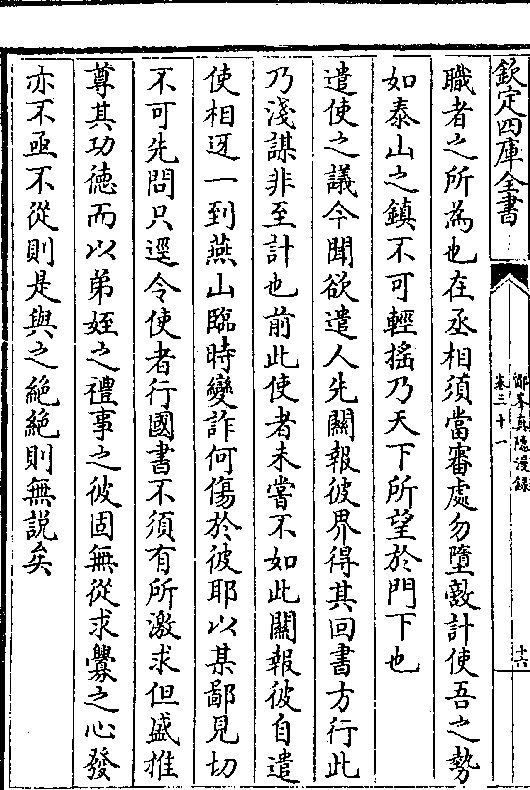 欽定四庫全書
鄮峯真隱漫錄
卷三十一
十六
職者之所為也在丞相須當審處勿墮敵計使吾之勢
如泰山之鎮不可輕搖乃天下所望於門下也
遣使之議今聞欲遣人先關報彼界得其回書方行此
乃淺謀非至計也前此使者未嘗不如此關報彼自遣
使相迓一到燕山臨時變詐何傷於彼耶以某鄙見切
不可先問只逕令使者行國書不須有所激求但盛推
尊其功德而以弟姪之禮事之彼固無從求釁之心發
亦不亟不從則是與之絶絶則無説矣